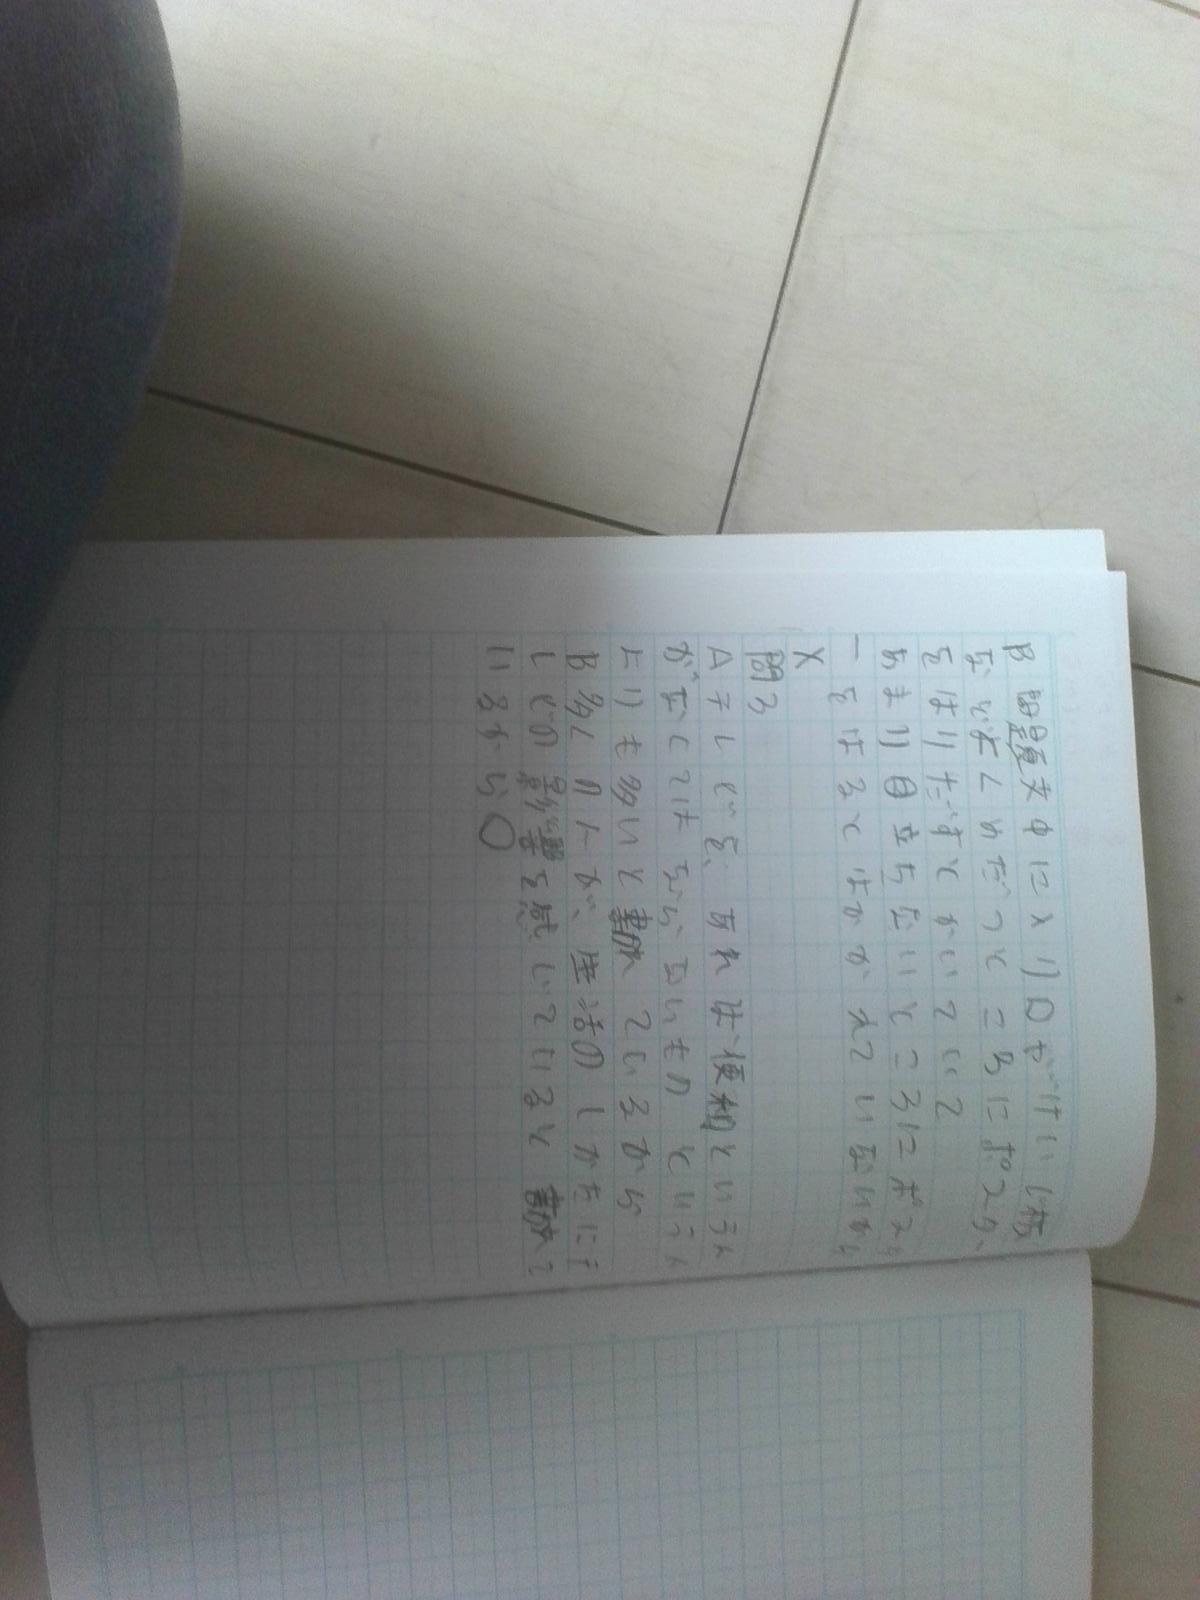 B 問題文中にメリロがけいじ板
などよくめだつところにポスター
をはりだすとかいていて
あまり目立たないところにポスタ
ーをはるとはかかれていないから
X
問3
Aテレビを、あれば便利という人
がなくてはならないもの という人
よりも多いと書かれているから
B多くの人が、生活のしかたにテ
レビの影響を感じていると書かれて
いるから○